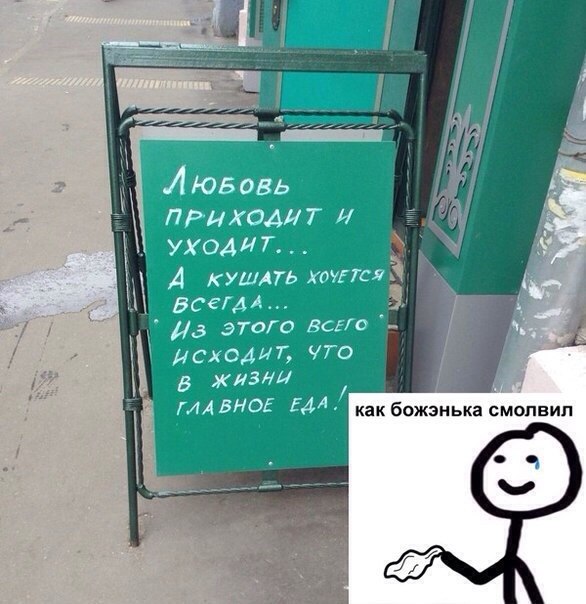 Любовь
приходит и
уходит...
А кушать хочется
всегда...
Из этого всего
исходит, что
в жизни
главное еда!
как божэнька смолвил